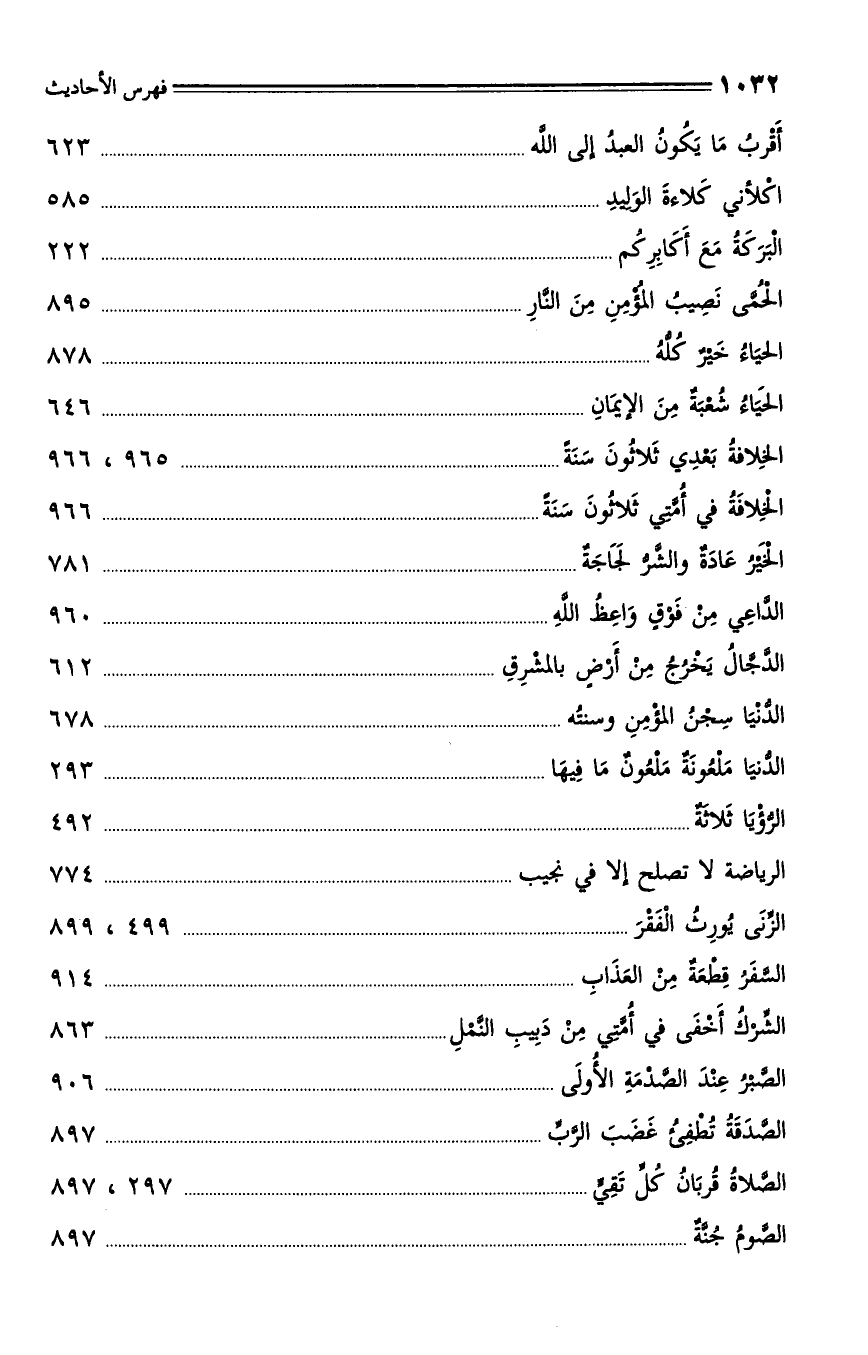 ١٠٣٢ فهرس الأحاديث
أَقْربُ مَا يَكُونُ العبدُ إلى اللَّه ٦٢٣
اكْلأني كَلاءةَ الوَلِيدِ ٥٨٥
الْبَرَكَةُ مَعَ أَكَابِرِكُم ٢٢٢
الْحُمَّى نَصِيبُ المُؤْمِنِ مِنَ النَّارِ ٨٩٥
الحيَاءُ خَيْرٌ كُلُّهُ ٨٧٨
الحَيَاءُ شُعْبَةٌ مِنَ الإيمَانِ ٦٤٦
الخِلافةُ بَعْدِي ثَلاثُونَ سَنَةً ٩٦٥ ، ٩٦٦
الْخِلافَةُ في أُمَّتِي ثَلاثُونَ سَنَةً ٩٦٦
الْخَيْرُ عَادَةٌ والشَّرُّ لَجَاجَةٌ ٧٨١
الدَّاعِي مِنْ فَوْقٍ وَاعِظُ اللَّهِ ٩٦٠
الدَّجَّالُ يَخْرُجُ مِنْ أَرْضٍ بالمشْرِقِ ٦١٢
الدُّنْيَا سِجْنُ المؤْمِنِ وسنتُه ٦٧٨
الدُّنيَا مَلْعُونَةٌ مَلْعُونٌ مَا فِيهَا ٢٩٣
الرُّؤْيَا ثَلاثَةٌ ٤٩٢
الرياضة لا تصلح إلا في نجيب ٧٧٤
الزِّنَى يُورِثُ الْفَقْرَ ٤٩٩ ، ٨٩٩
السَّفَرُ قِطْعَةٌ مِنْ العَذَابِ ٩١٤
الشِّرْكُ أَخْفَى في أُمَّتِي مِنْ دَبِيبِ النَّمْلِ ٨٦٣
الصَّبْرُ عِنْدَ الصَّدْمَةِ الأُولَى ٩٠٦
الصَّدَقَةُ تُطْفِئُ غَضَبَ الرَّبِّ ٨٩٧
الصَّلاةُ قُربَانُ كُلِّ تَقِيٍّ ٢٩٧ ، ٨٩٧
الصَّومُ جُنَّةٌ ٨٩٧